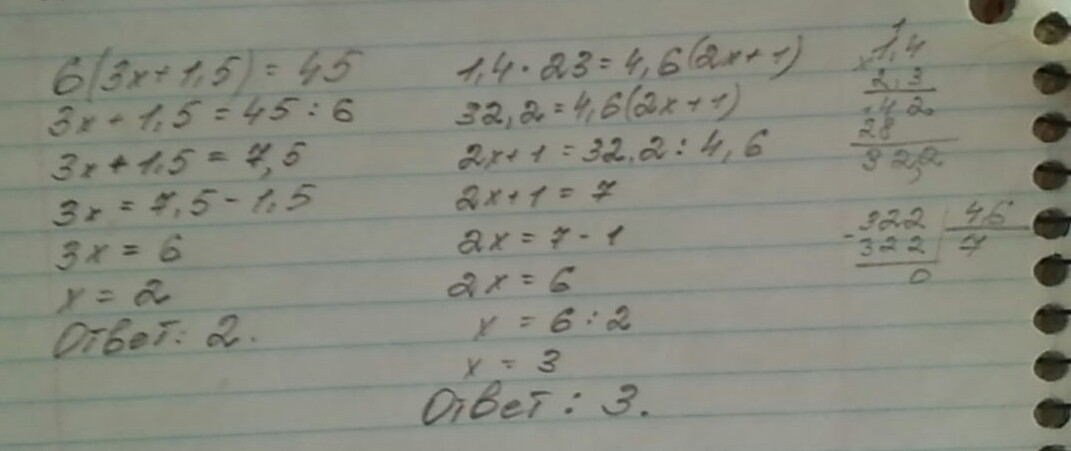 6(3x+1,5) = 45
3x+1,5 = 45 : 6
3x+1,5 = 7,5
3x = 7,5 - 1,5
3x = 6
x = 2
Ответ: 2.
1,4 · 23 = 4,6(2x+1)
32,2 = 4,6(2x+1)
2x+1 = 32,2 : 4,6
2x+1 = 7
2x = 7 - 1
2x = 6
x = 6 : 2
x = 3
Ответ: 3.
1
× 1,4
2,3
42
28
32,2
- 322 | 46
322 | 7
0